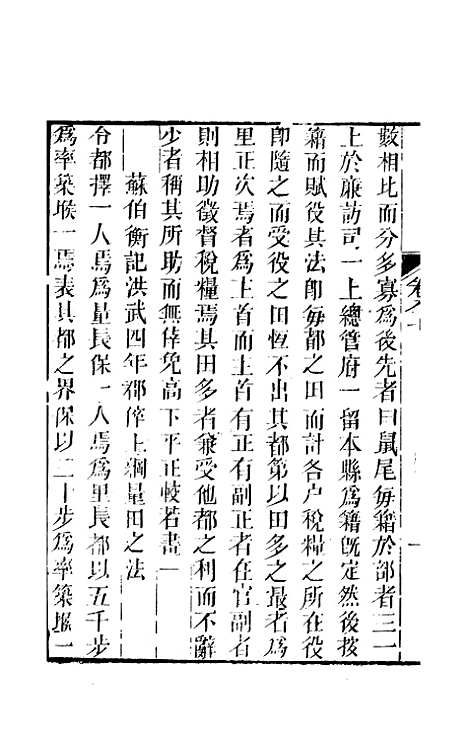 數相比而分多寡為後先者曰鼠尾每籍於部者三一
上於廉訪司一上總管府一留本縣為籍旣定然後按
籍而賦役其法卽每都之田而計各户稅糧之所在役
卽隨之而受役之田恆不出其都第以田多之最者為
里正次焉者為主首有正有副正者在官副者
則相助徵督稅糧焉其田多者兼受他都之利而不辭
少者稱其所助而無倖免高下平正較若畫一
蘇伯衡記洪武四年郡倅上綱量田之法
令都擇一人焉為量長保一人焉為里長都以五千步
為率築堠一焉表其都之界保以二十步為率築堠一
卷